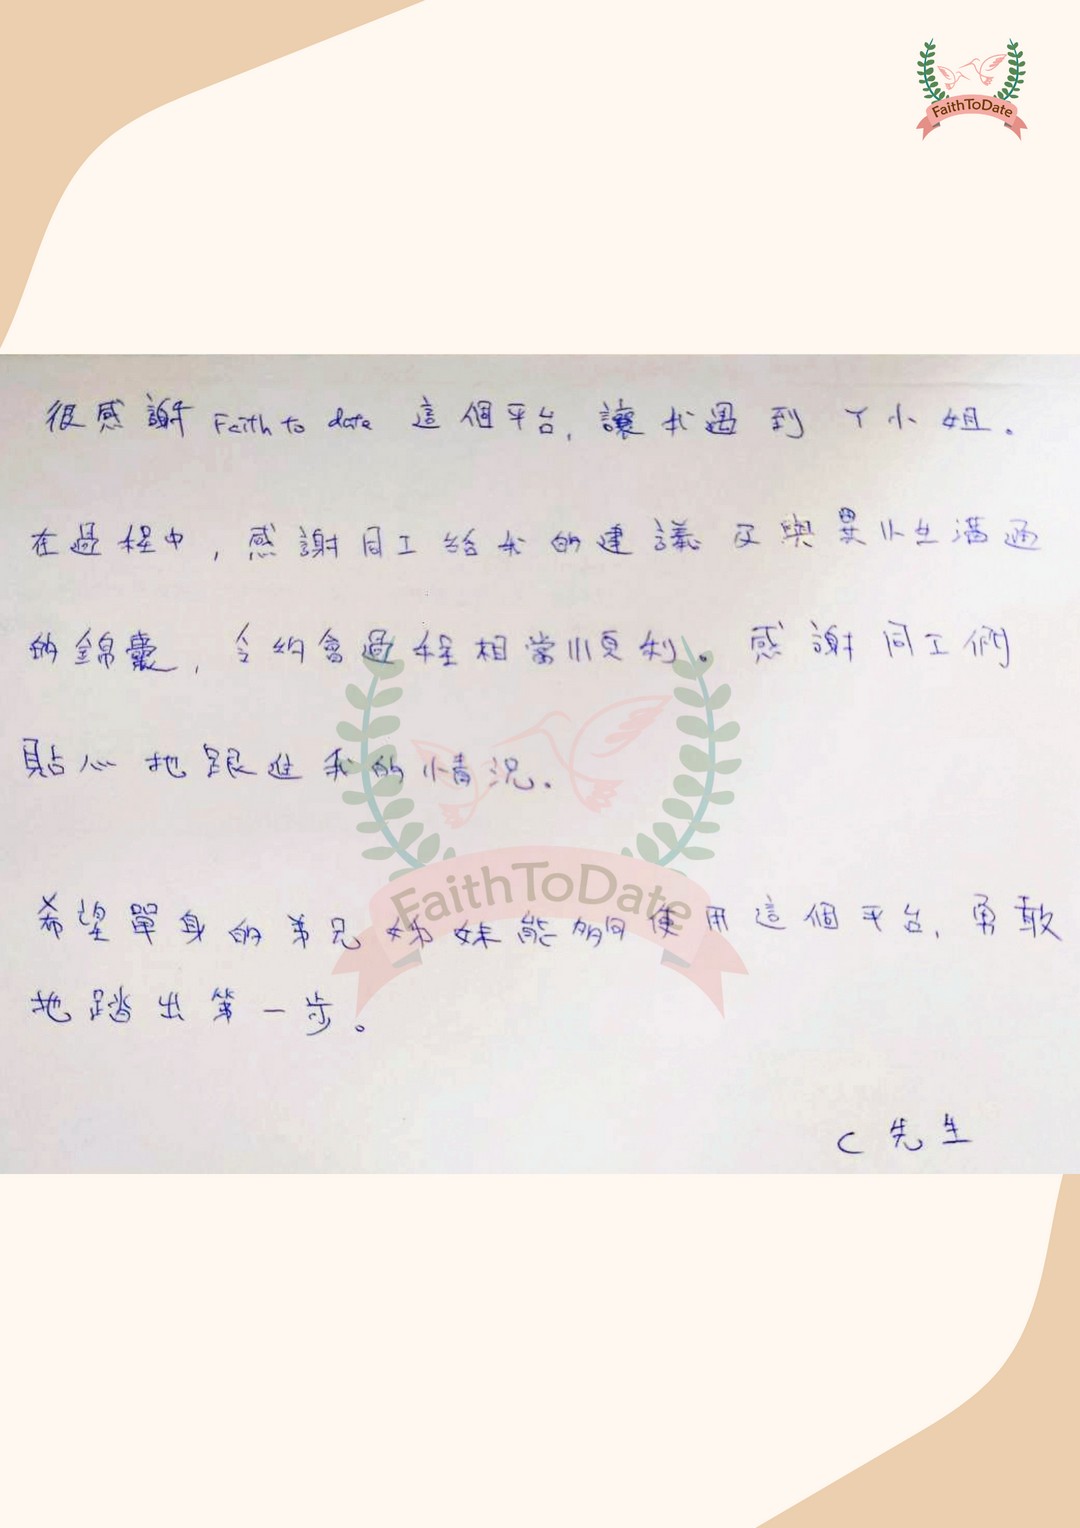 FaithToDate
很感謝 Faith to date 這個平台, 讓我遇到 Y小姐。
在過程中, 感謝同工給我的建議及與異性溝通
的錦囊, 令約會過程相當順利。感謝同工們
貼心地跟進我的情況。
FaithToDate
希望單身的弟兄姊妹能夠使用這個平台, 勇敢
地踏出第一步。
C 先生